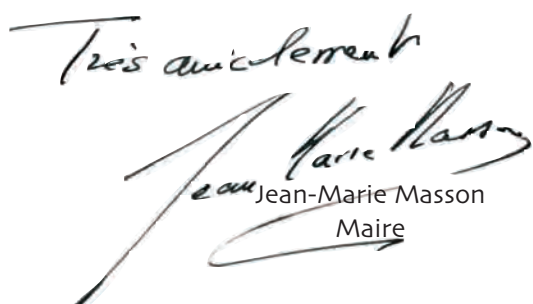 Très amicalement
Jean Marie Masson
Jean-Marie Masson
Maire